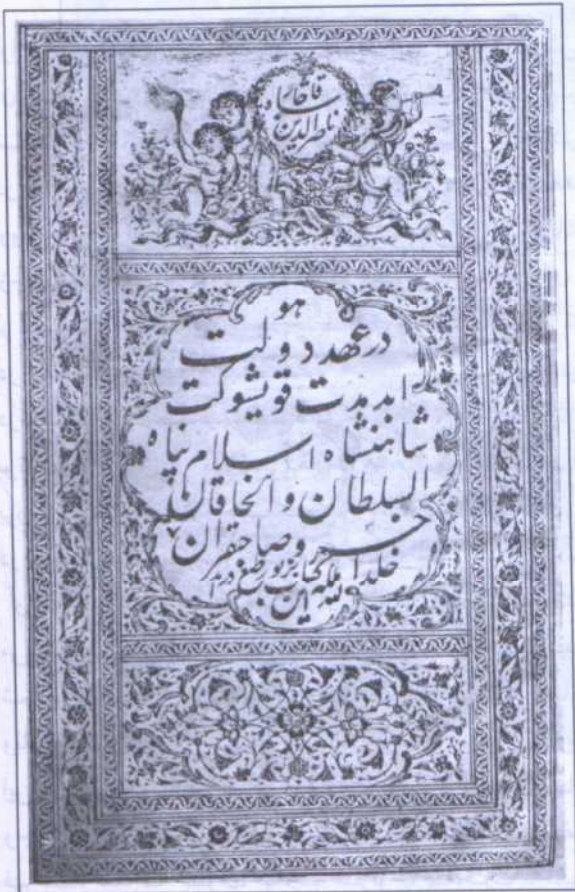 ناصرالدین شاه
قاجار
هو
در عهد دولت
ابد مدت قویشوکت
شاهنشاه اسلام پناه
السلطان و الخاقان
و صاحبقران
خلد الله ملکه این کتاب بزیور طبع درآمد